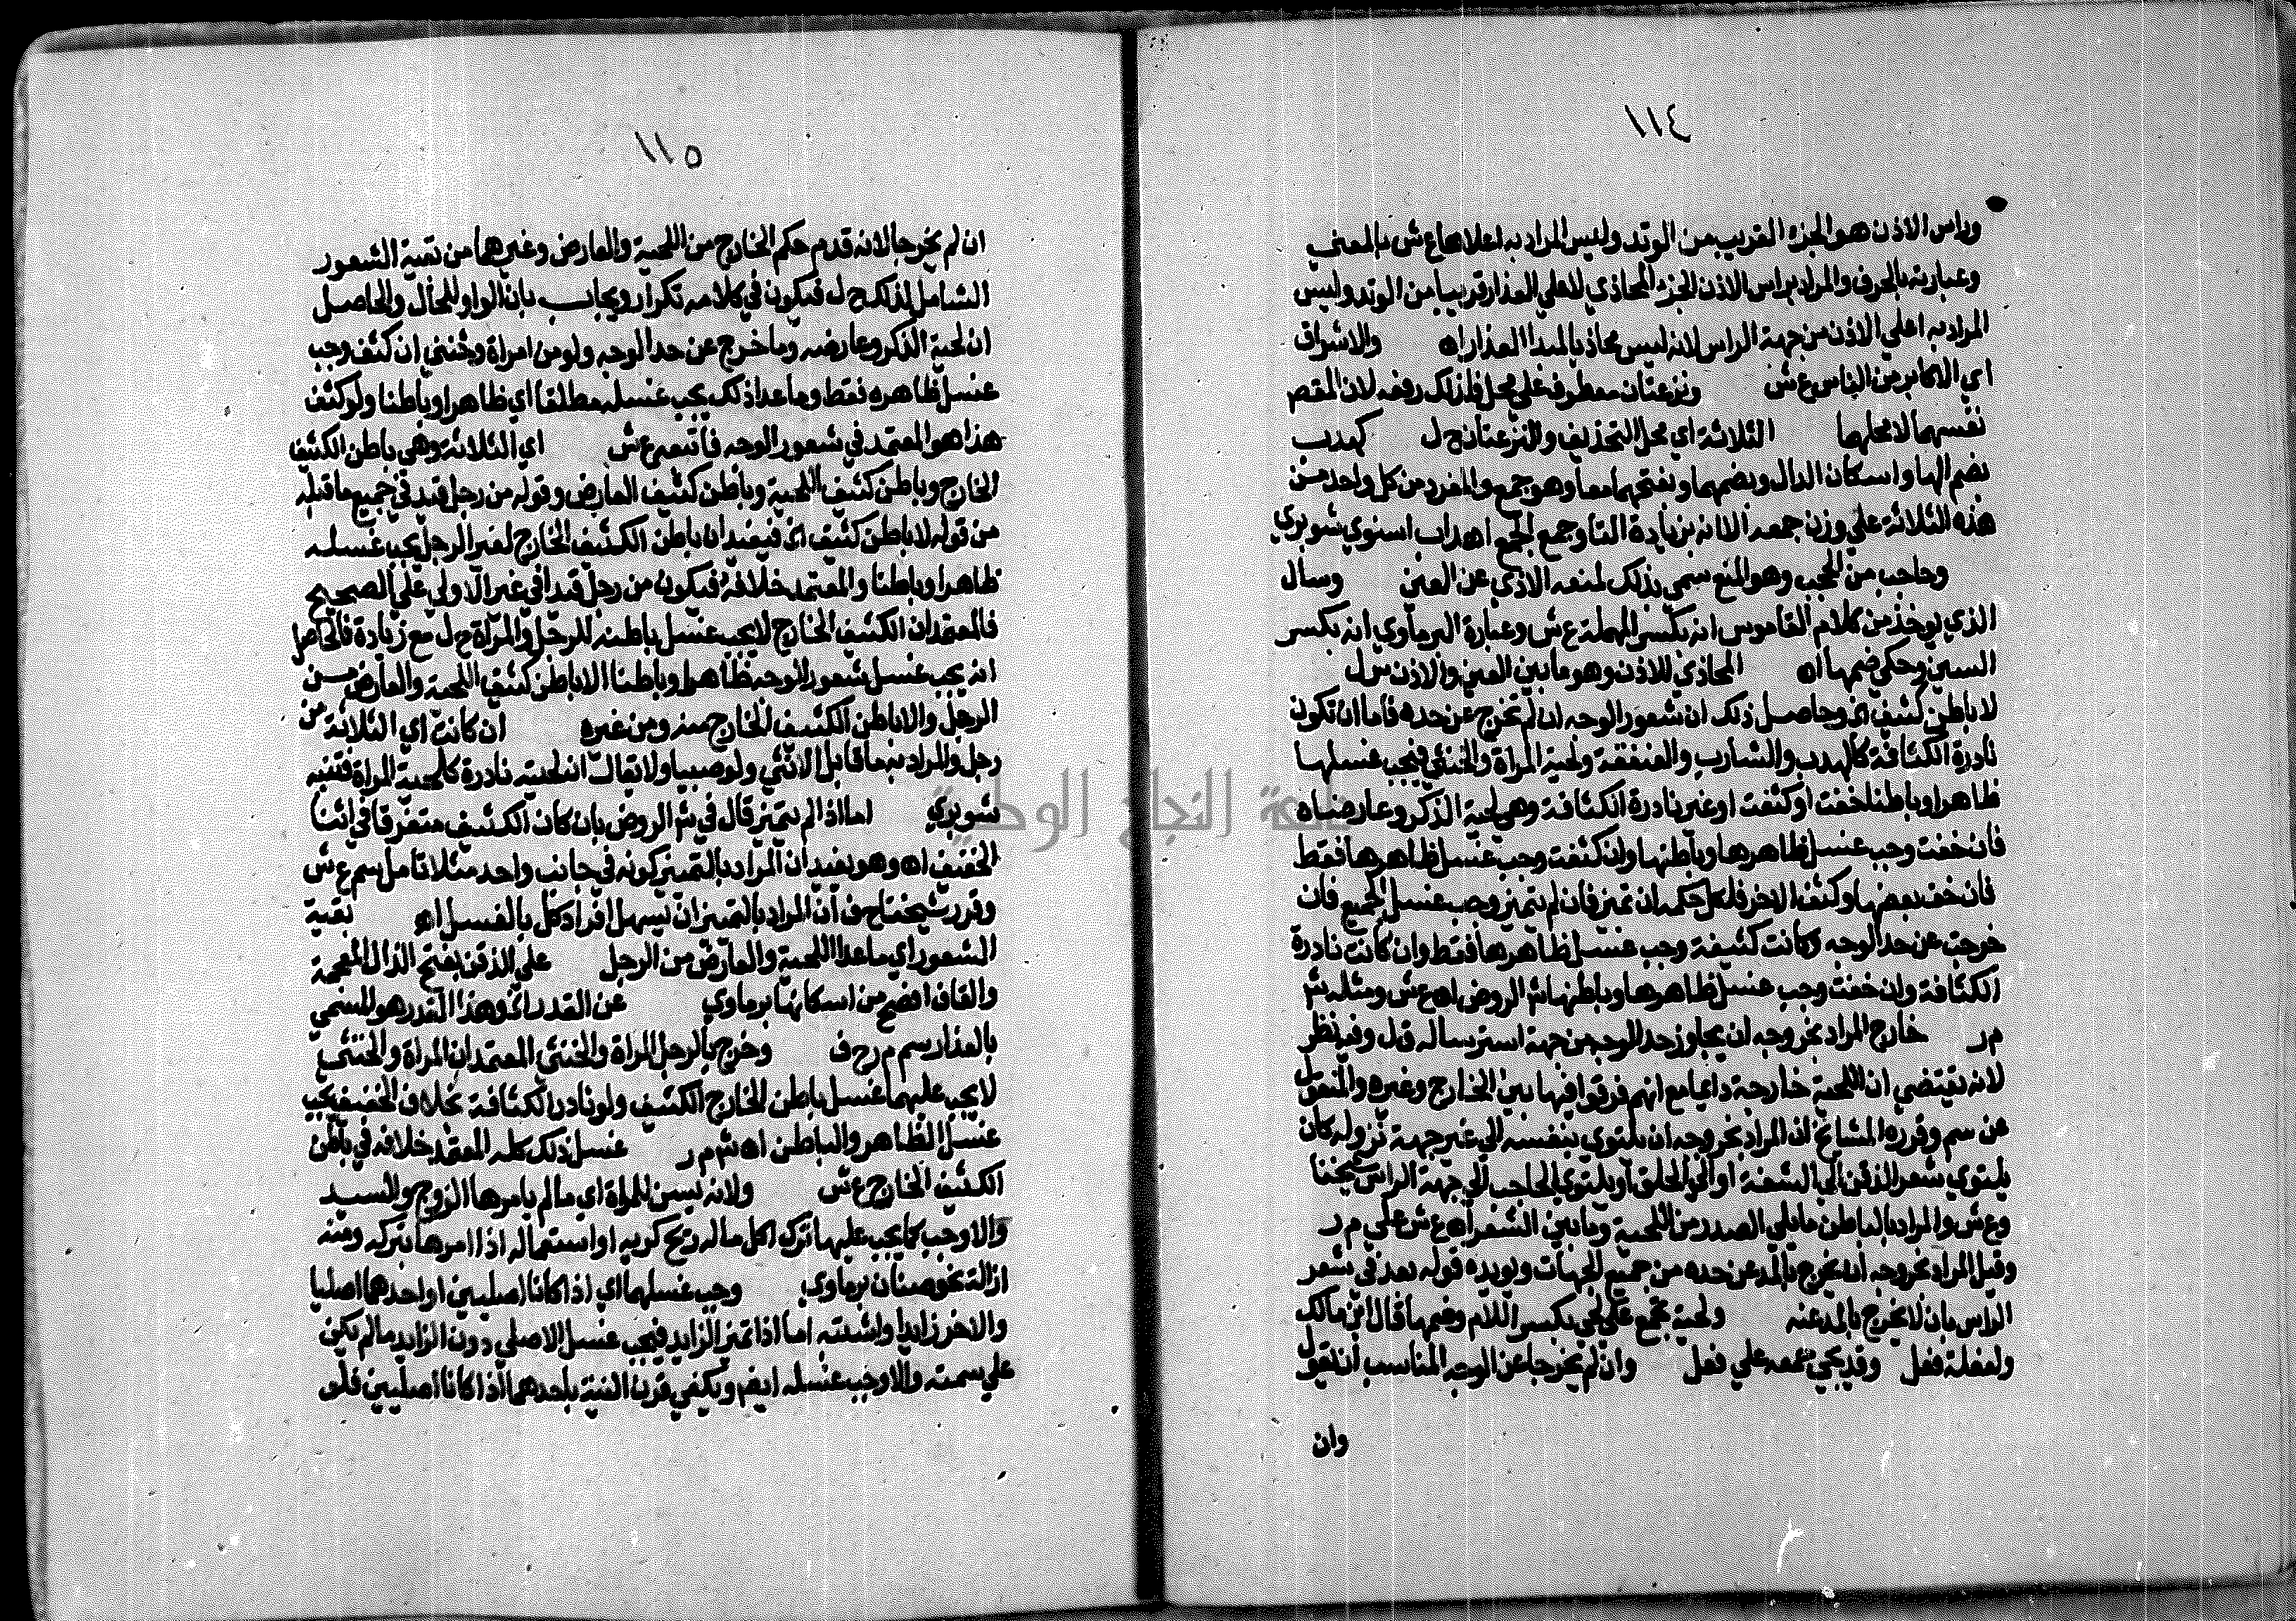 ١١٤
وراس الاذن هو الجزء القريب من الوتد وليس المراد به اعلاها ع ش بالمعنى
وعبارته بالحرف والمراد براس الاذن الجزء المحاذي لاعلى العذار قريبا من الوتد وليس
المراد به اعلى الاذن من جهة الراس لانه ليس محاذيا لمبدا العذار اه والاشراق
اي الاكابر من الناس ع ش ونزعتان معطوف على محل فلذلك رفعه لان المقصم
نفسهما لا محلهما الثلاثة اي محل التحذيف والنزعتان ح ل كهدب
بضم الها واسكان الدال وبضمهما وبفتحهما معا وهو جمع والمفرد من كل واحد من
هذه الثلاثة على وزن جمعه الا انه بزيادة التا وجمع الجمع اهداب اسنوي شوبري
وحاجب من الحجب وهو المنع سمي بذلك لمنعه الاذى عن العين وسال
الذي يوخذ من كلام القاموس انه بكسر المهملة ع ش وعبارة البرماوي انه بكسر
السين وحكي ضمها اه المحاذي للاذن وهو ما بين العين والاذن س ل
لا باطن كثيف الخ وحاصل ذلك ان شعور الوجه ان لم تخرج عن حده فاما ان تكون
نادرة الكثافة كالهدب والشارب والعنفقة ولحية المراة والخنثى فيجب غسلها
ظاهرا وباطنا خفت او كثفت او غير نادرة الكثافة وهي لحية الذكر وعارضاه
فان خفت وجب غسل ظاهرها وباطنها وان كثفت وجب غسل ظاهرها فقط
فان خف بعضها وكثف الاخر فلكل حكمه ان تميز فان لم يتميز وجب غسل الجميع فان
خرجت عن حد الوجه وكانت كثيفة وجب غسل ظاهرها فقط وان كانت نادرة
الكثافة وان خفت وجب غسل ظاهرها وباطنها ش الروض اه ع ش ومثله ش
م ر خارج المراد بخروجه ان يجاوز حد الوجه من جهة استرساله ق ل وفيه نظر
لانه يقتضي ان اللحية خارجة دايما مع انهم فرقوا فيها بين الخارج وغيره والمنقول
عن سم وقرره المشايخ ان المراد بخروجه ان يلتوي بنفسه الى غير جهة نزوله كان
يلتوي شعر الذقن الى الشفة او الى الحلق او يلتوي الحاجب الى جهة الراس شيخنا
وع ش والمراد بالباطن ما يلي الصدر من اللحية وما بين الشعر اه ع ش على م ر
وقيل المراد بخروجه ان يخرج بالمد عن حده من جميع الجهات ويويده قوله بعد في شعر
الراس بان لا يخرج بالمد عنه ولحية تجمع على لحي بكسر اللام وضمها قال ابن مالك
ولفعلة فعل وقد يجي جمعه على فعل وان لم يخرجا عن الوجه المناسب ان يقول
وان
١١٥
ان لم يخرجا لانه قدم حكم الخارج من اللحية والعارض وغيرهما من بقية الشعور
الشامل لذلك ح ل فيكون في كلامه تكرار ويجاب بان الواو للحال والحاصل
ان لحية الذكر وعارضه وما خرج عن حد الوجه ولو من امراة وخنثى ان كثف وجب
غسل ظاهره فقط وما عدا ذلك يجب غسله مطلقا اي ظاهرا وباطنا ولو كثف
هذا هو المعتمد في شعور الوجه فاتبعه ع ش اي الثلاثة وهي باطن الكثيف
الخارج وباطن كثيف اللحية وباطن كثيف العارض وقوله من رجل قيد في جميع ما قبله
من قوله لا باطن كثيف الخ فيفيد ان باطن الكثيف الخارج لغير الرجل يجب غسله
ظاهرا وباطنا والمعتمد خلافه فيكون من رجل قيدا في غير الاولى على الصحيح
فالمعتمد ان الكثيف الخارج لا يجب غسل باطنه للرجل والمراة ح ل مع زيادة فالحاصل
انه يجب غسل شعور الوجه ظاهرا وباطنا الا باطن كثيف اللحية والعارض من
الرجل والا باطن الكثيف الخارج منه ومن غيره ان كانت اي الثلاثة من
رجل والمراد به ما قابل الانثى ولو صبيا ولا يقال ان لحيته نادرة كلحية المراة فتنبه
شوبري اما اذا لم يتميز قال في ش الروض بان كان الكثيف متفرقا في اثنا
الخفيف اه وهو يفيد ان المراد بالتميز كونه في جانب واحد مثلا تامل سم ع ش
وقرر شيخنا ح ف ان المراد بالتميز ان يسهل افراد كل بالغسل اه بقية
الشعور اي ما عدا اللحية والعارض من الرجل على الذقن بفتح الذال المعجمة
والقاف افصح من اسكانها برماوي عن القدر الخ وهذا القدر هو المسمى
بالعذار سم م ر ح ف وخرج بالرجل المراة والخنثى المعتمد ان المراة والخنثى
لا يجب عليهما غسل باطن الخارج الكثيف ولو نادر الكثافة بخلاف الخفيف يجب
غسل الظاهر والباطن اه ش م ر غسل ذلك كله المعتمد خلافه في باطن
الكثيف الخارج ع ش ولانه يسن للمراة اي ما لم يامرها الزوج والسيد
والا وجب كما يجب عليها ترك اكل ما له ريح كريه او استعماله اذا امرها بتركه ومنه
ازالته نحو صنان برماوي وجب غسلهما اي اذا كانا اصليين او احدهما اصليا
والاخر زايدا واشتبه اما اذا تميز الزايد فيجب غسل الاصلي دون الزايد ما لم يكن
على سمته والا وجب غسله ايضم ويكفي قرن النية باحدهما اذا كانا اصليين فلو